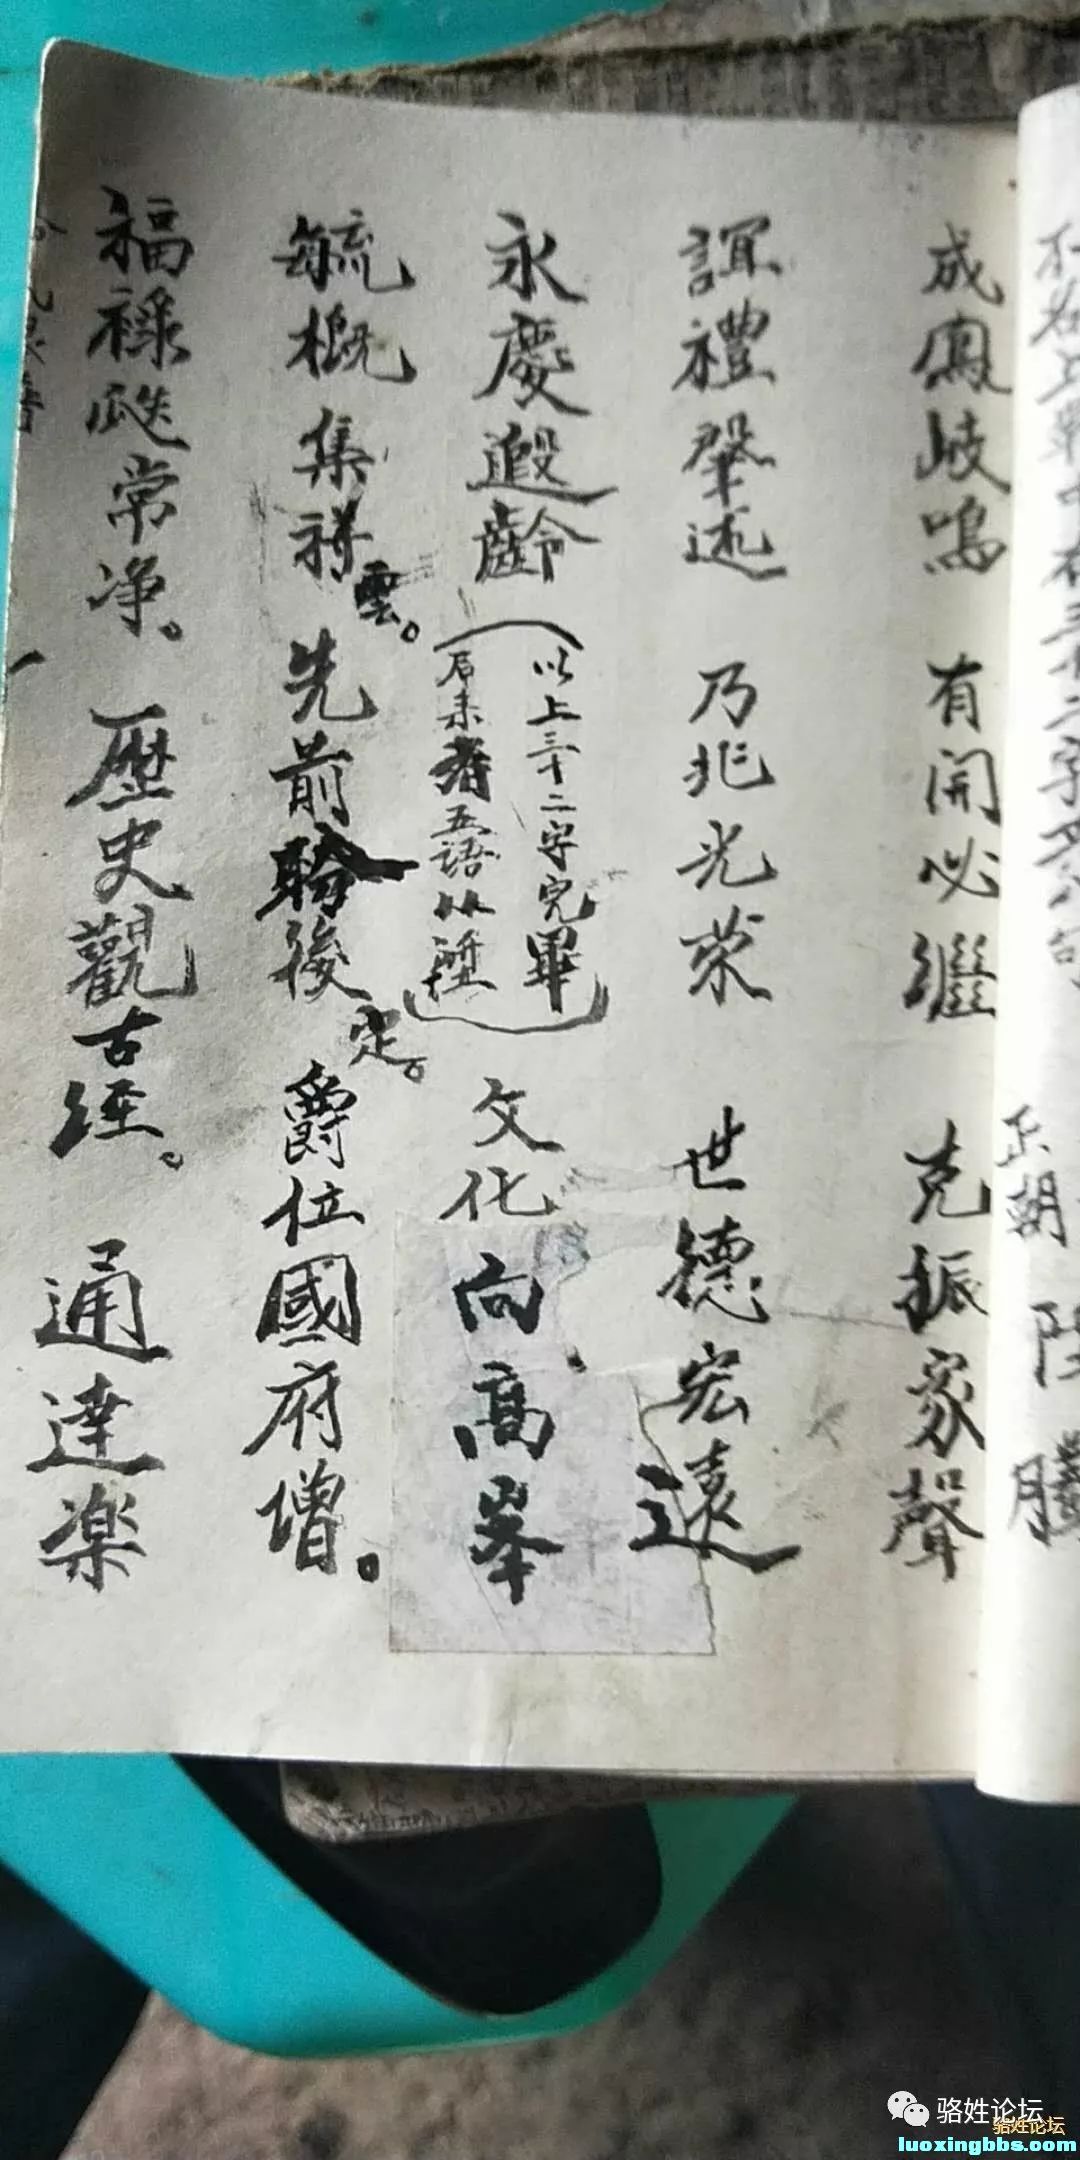 正朝
成鳳岐鳴 有開必繼 克振家聲
誼禮肇述 乃兆光荣 世德宏遠
永慶遐齡（以上三十二字完畢
后来者五語以 ）文化向高峯
毓概集祥雲。先前 後定。爵位國府增。
福禄 常净。歷史觀古经。通達楽
骆姓论坛
骆姓论坛
luoxingbbs.com